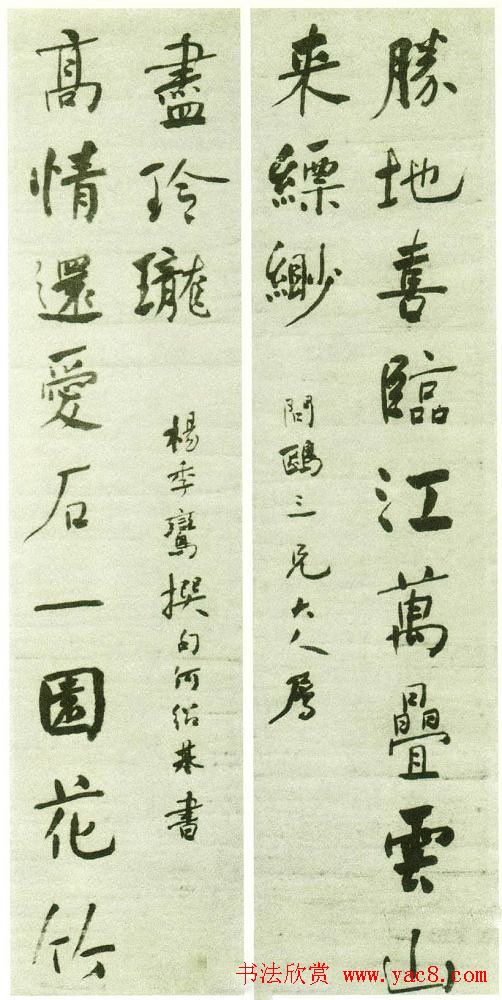 勝地喜臨江萬疊雲山
来縹緲
問鷗三兄大人屬
高情還愛石一園花竹
盡玲瓏
楊季鸞撰句何紹基書
书法欣赏 www.yac8.com